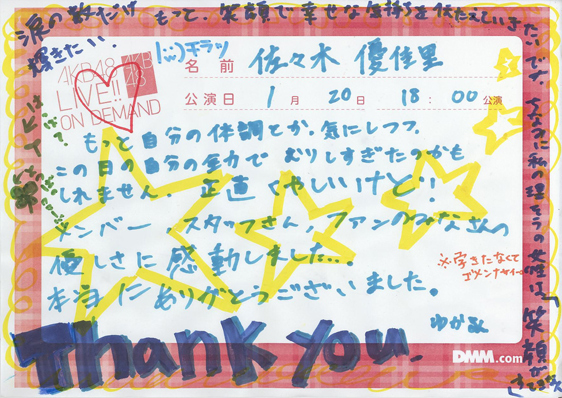 涙の数だけ
輝きたい。
もっと、笑顔で幸せな気持ちを伝えていきたいです
ちなみに私の理そうの女性は、
笑顔が
|ω・)チラッ
AKB48
LIVE!!
ON DEMAND
AKB
48
名前 佐々木 優佳里
公演日 1月 20日 18:00公演
もっと自分の体調とか、気にしつつ、
この日の自分の全力で むりしすぎたのかも
しれません。正直くやしいけど!!
メンバー、スタッフさん、ファンのみなさんの
優しさに感動しました…。
本当にありがとうございました。
※字きたなくて
ゴメンナサイ
ゆかるん
Thank you.
DMM.com